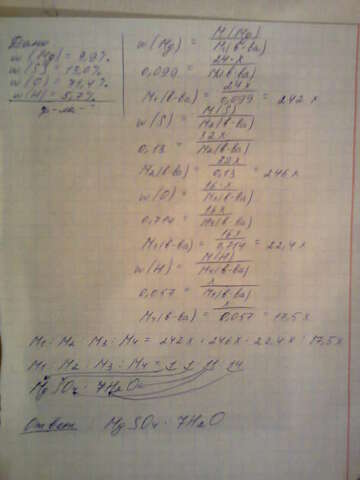 Дано
w(Mg) = 9,9%
w(S) = 13,0%
w(O) = 71,4%
w(H) = 5,7%
ф-ла - ?
w(Mg) = M(Mg) / M(в-ва)
0,099 = 24x / M1(в-ва)
M1(в-ва) = 24x / 0,099 = 242x
w(S) = M(S) / M2(в-ва)
0,13 = 32x / M2(в-ва)
M2(в-ва) = 32x / 0,13 = 246x
w(O) = 16·x / M3(в-ва)
0,714 = 16x / M3(в-ва)
M3(в-ва) = 16x / 0,714 = 22,4x
w(H) = M(H) / M4(в-ва)
0,057 = x / M4(в-ва)
M4(в-ва) = x / 0,057 = 17,5x
M1 : M2 : M3 : M4 = 242x : 246x : 22,4x : 17,5x
M1 : M2 : M3 : M4 = 1 : 1 : 11 : 14
MgSO4 · 7H2O
Ответ: MgSO4 · 7H2O